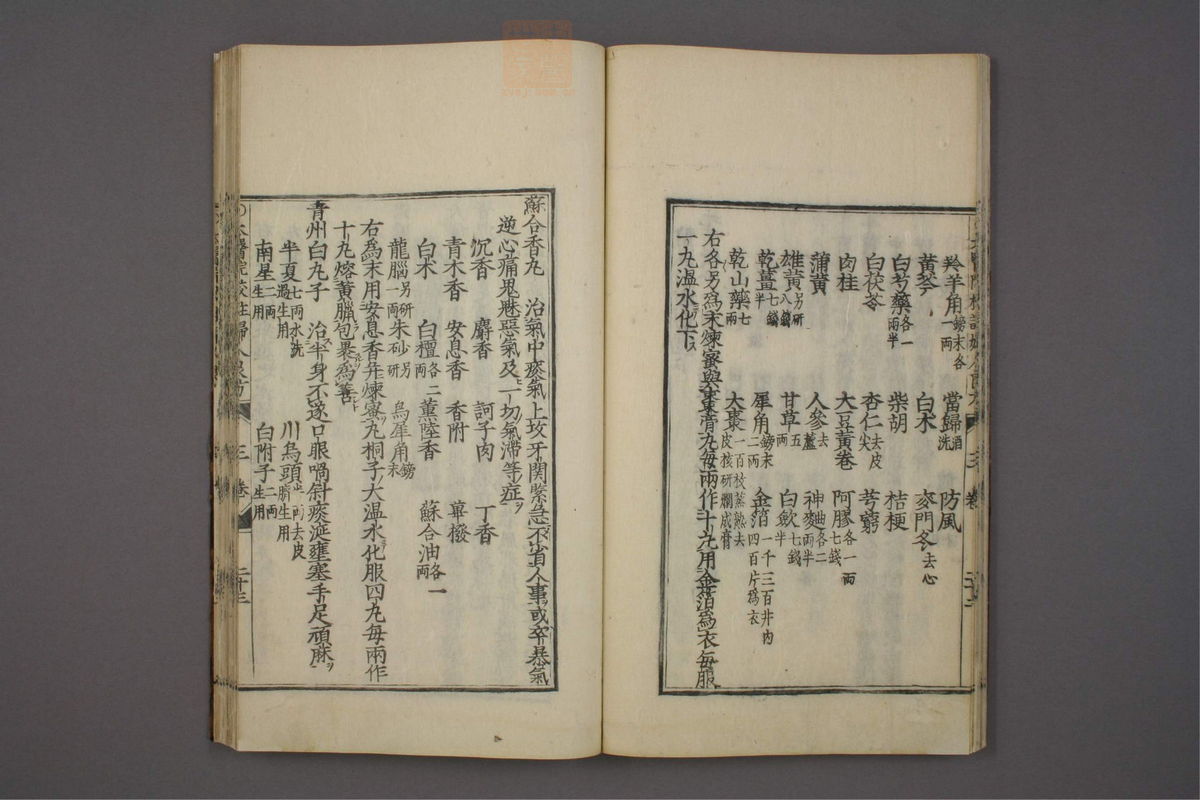 羚羊角鎊末各一兩 當歸酒洗 防風
黃芩 白朮 麥門冬去心
白芍藥各一兩半 柴胡 桔梗
白茯苓 杏仁去皮尖 芎藭
肉桂 大豆黃卷 阿膠各一兩七錢
蒲黃 人參去蘆 神麯各二兩半
雄黃另研八錢 甘草五兩 白歛七錢半
乾薑七錢半 犀角鎊末二兩 金箔一千三百井內四百片爲衣
乾山藥七兩 大棗一百枚蒸熟去皮核研爛成膏
右各另爲末煉蜜與棗膏丸每兩作十丸用金箔爲衣每服
一丸温水化下
蘇合香丸 治氣中痰氣上攻牙関緊急不省人事或卒暴氣
逆心痛鬼魅惡氣及一切氣滯等症
沉香 麝香 訶子肉 丁香
青木香 安息香 香附 蓽撥
白朮 白檀各二兩 薰陸香 蘇合油各一兩
龍腦另研一兩 朱砂另研 烏犀角鎊末
右爲末用安息香幷煉蜜丸桐子大温水化服四丸每兩作
十丸熔黃臘包裹爲善
青州白丸子 治半身不遂口眼喎斜痰涎壅塞手足頑麻
半夏七兩水洗過生用 川烏頭去皮臍生用
南星二兩生用 白附子二兩生用
太醫院校註婦人良方 三卷 二十三